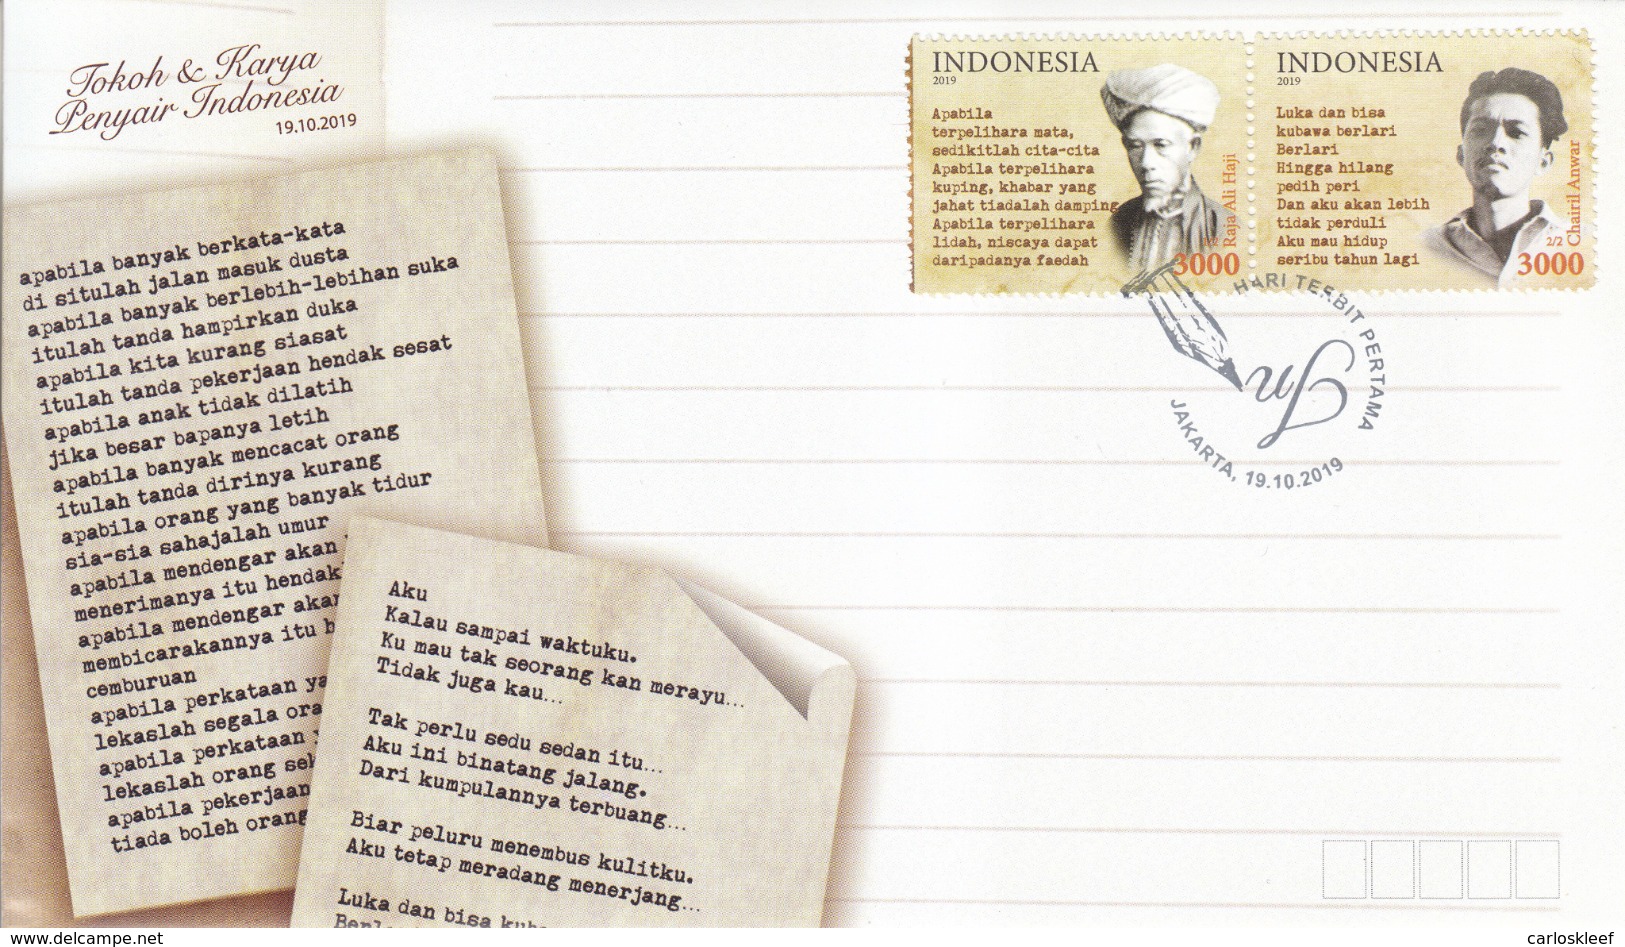 Tokoh & Karya
Penyair Indonesia
19.10.2019
INDONESIA
2019
Apabila
terpelihara mata,
sedikitlah cita-cita
Apabila terpelihara
kuping, khabar yang
jahat tiadalah damping
Apabila terpelihara
lidah, niscaya dapat
daripadanya faedah
Raja Ali Haji
3000
INDONESIA
2019
Luka dan bisa
kubawa berlari
Berlari
Hingga hilang
pedih peri
Dan aku akan lebih
tidak perduli
Aku mau hidup
seribu tahun lagi
2/2 Chairil Anwar
3000
HARI TERBIT PERTAMA
JAKARTA, 19.10.2019
apabila banyak berkata-kata
di situlah jalan masuk dusta
apabila banyak berlebih-lebihan suka
itulah tanda hampirkan duka
apabila kita kurang siasat
itulah tanda pekerjaan hendak sesat
apabila anak tidak dilatih
jika besar bapanya letih
apabila banyak mencacat orang
itulah tanda dirinya kurang
apabila orang yang banyak tidur
sia-sia sahajalah umur
apabila mendengar akan
menerimanya itu hendak
apabila mendengar akan
membicarakannya itu h
cemburuan
apabila perkataan ya
lekaslah segala ora
apabila perkataan y
lekaslah orang sek
apabila pekerjaan
tiada boleh orang
Aku
Kalau sampai waktuku.
Ku mau tak seorang kan merayu...
Tidak juga kau...
Tak perlu sedu sedan itu...
Aku ini binatang jalang.
Dari kumpulannya terbuang...
Biar peluru menembus kulitku.
Aku tetap meradang menerjang...
Luka dan bisa kub
delcampe.net
carloskleef